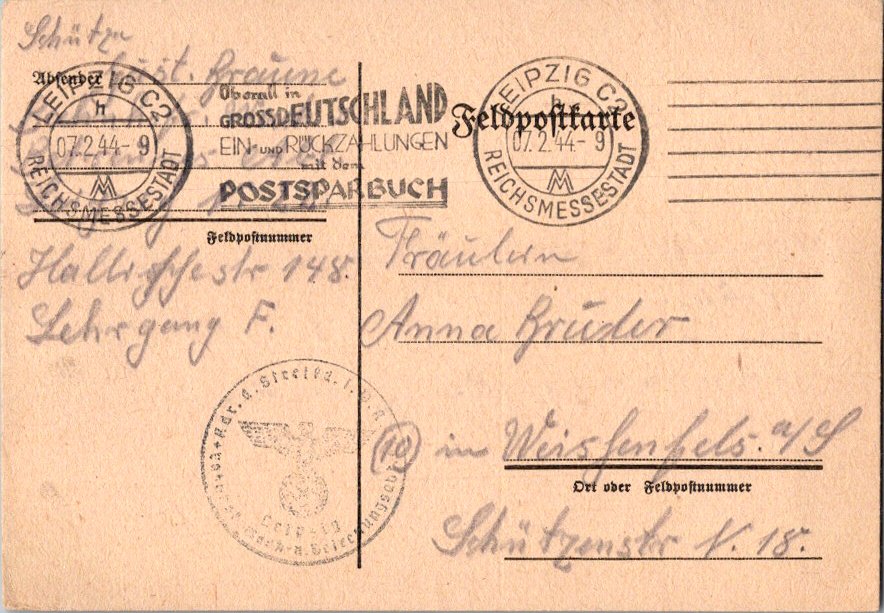 Schütze
Absender
Gust. Braune
Feldpostnummer
Hallischestr 148.
Lehrgang F.
LEIPZIG C2
h
07.2.44-9
REICHSMESSESTADT
Überall in
GROSSDEUTSCHLAND
EIN- UND RÜCKZAHLUNGEN
mit dem
POSTSPARBUCH
Feldpostkarte
LEIPZIG C2
h
07.2.44-9
REICHSMESSESTADT
Fräulein
Anna Bruder
(10) in Weissenfels. a/S
Ort oder Feldpostnummer
Schützenstr N. 18.
Leipzig